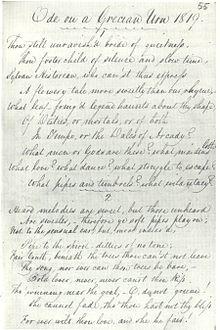 55
Ode on a Grecian Urn 1819.
Thou still unravish'd bride of quietness,
Thou foster child of silence and slow time,
Sylvan Historian, who can'st thus express
A flowery tale more sweetly than our rhyme,
What leaf-fring'd legend haunts about thy shape
Of Deities, or mortals, or of both
In Tempe, or the Dales of Arcady?
What men or Gods are these? what maidens loth
What love? what dance? what struggle to escape?
What pipes and timbrels? what wild extacy?
2
Heard melodies are sweet, but those unheard
Are sweeter, therefore ye soft pipes play on;
Not to the sensual ear, but more endear'd
Pipe to the spirit, ditties of no tone;
Fair Youth, beneath the trees thou can'st not leave
Thy song, nor ever can those trees be bare,
Bold lover, never, never can'st thou kiss,
Tho' winning near the goal, O, do not grieve
She cannot fade, tho' thou hast not thy bliss
For ever wilt thou love, and she be fair!